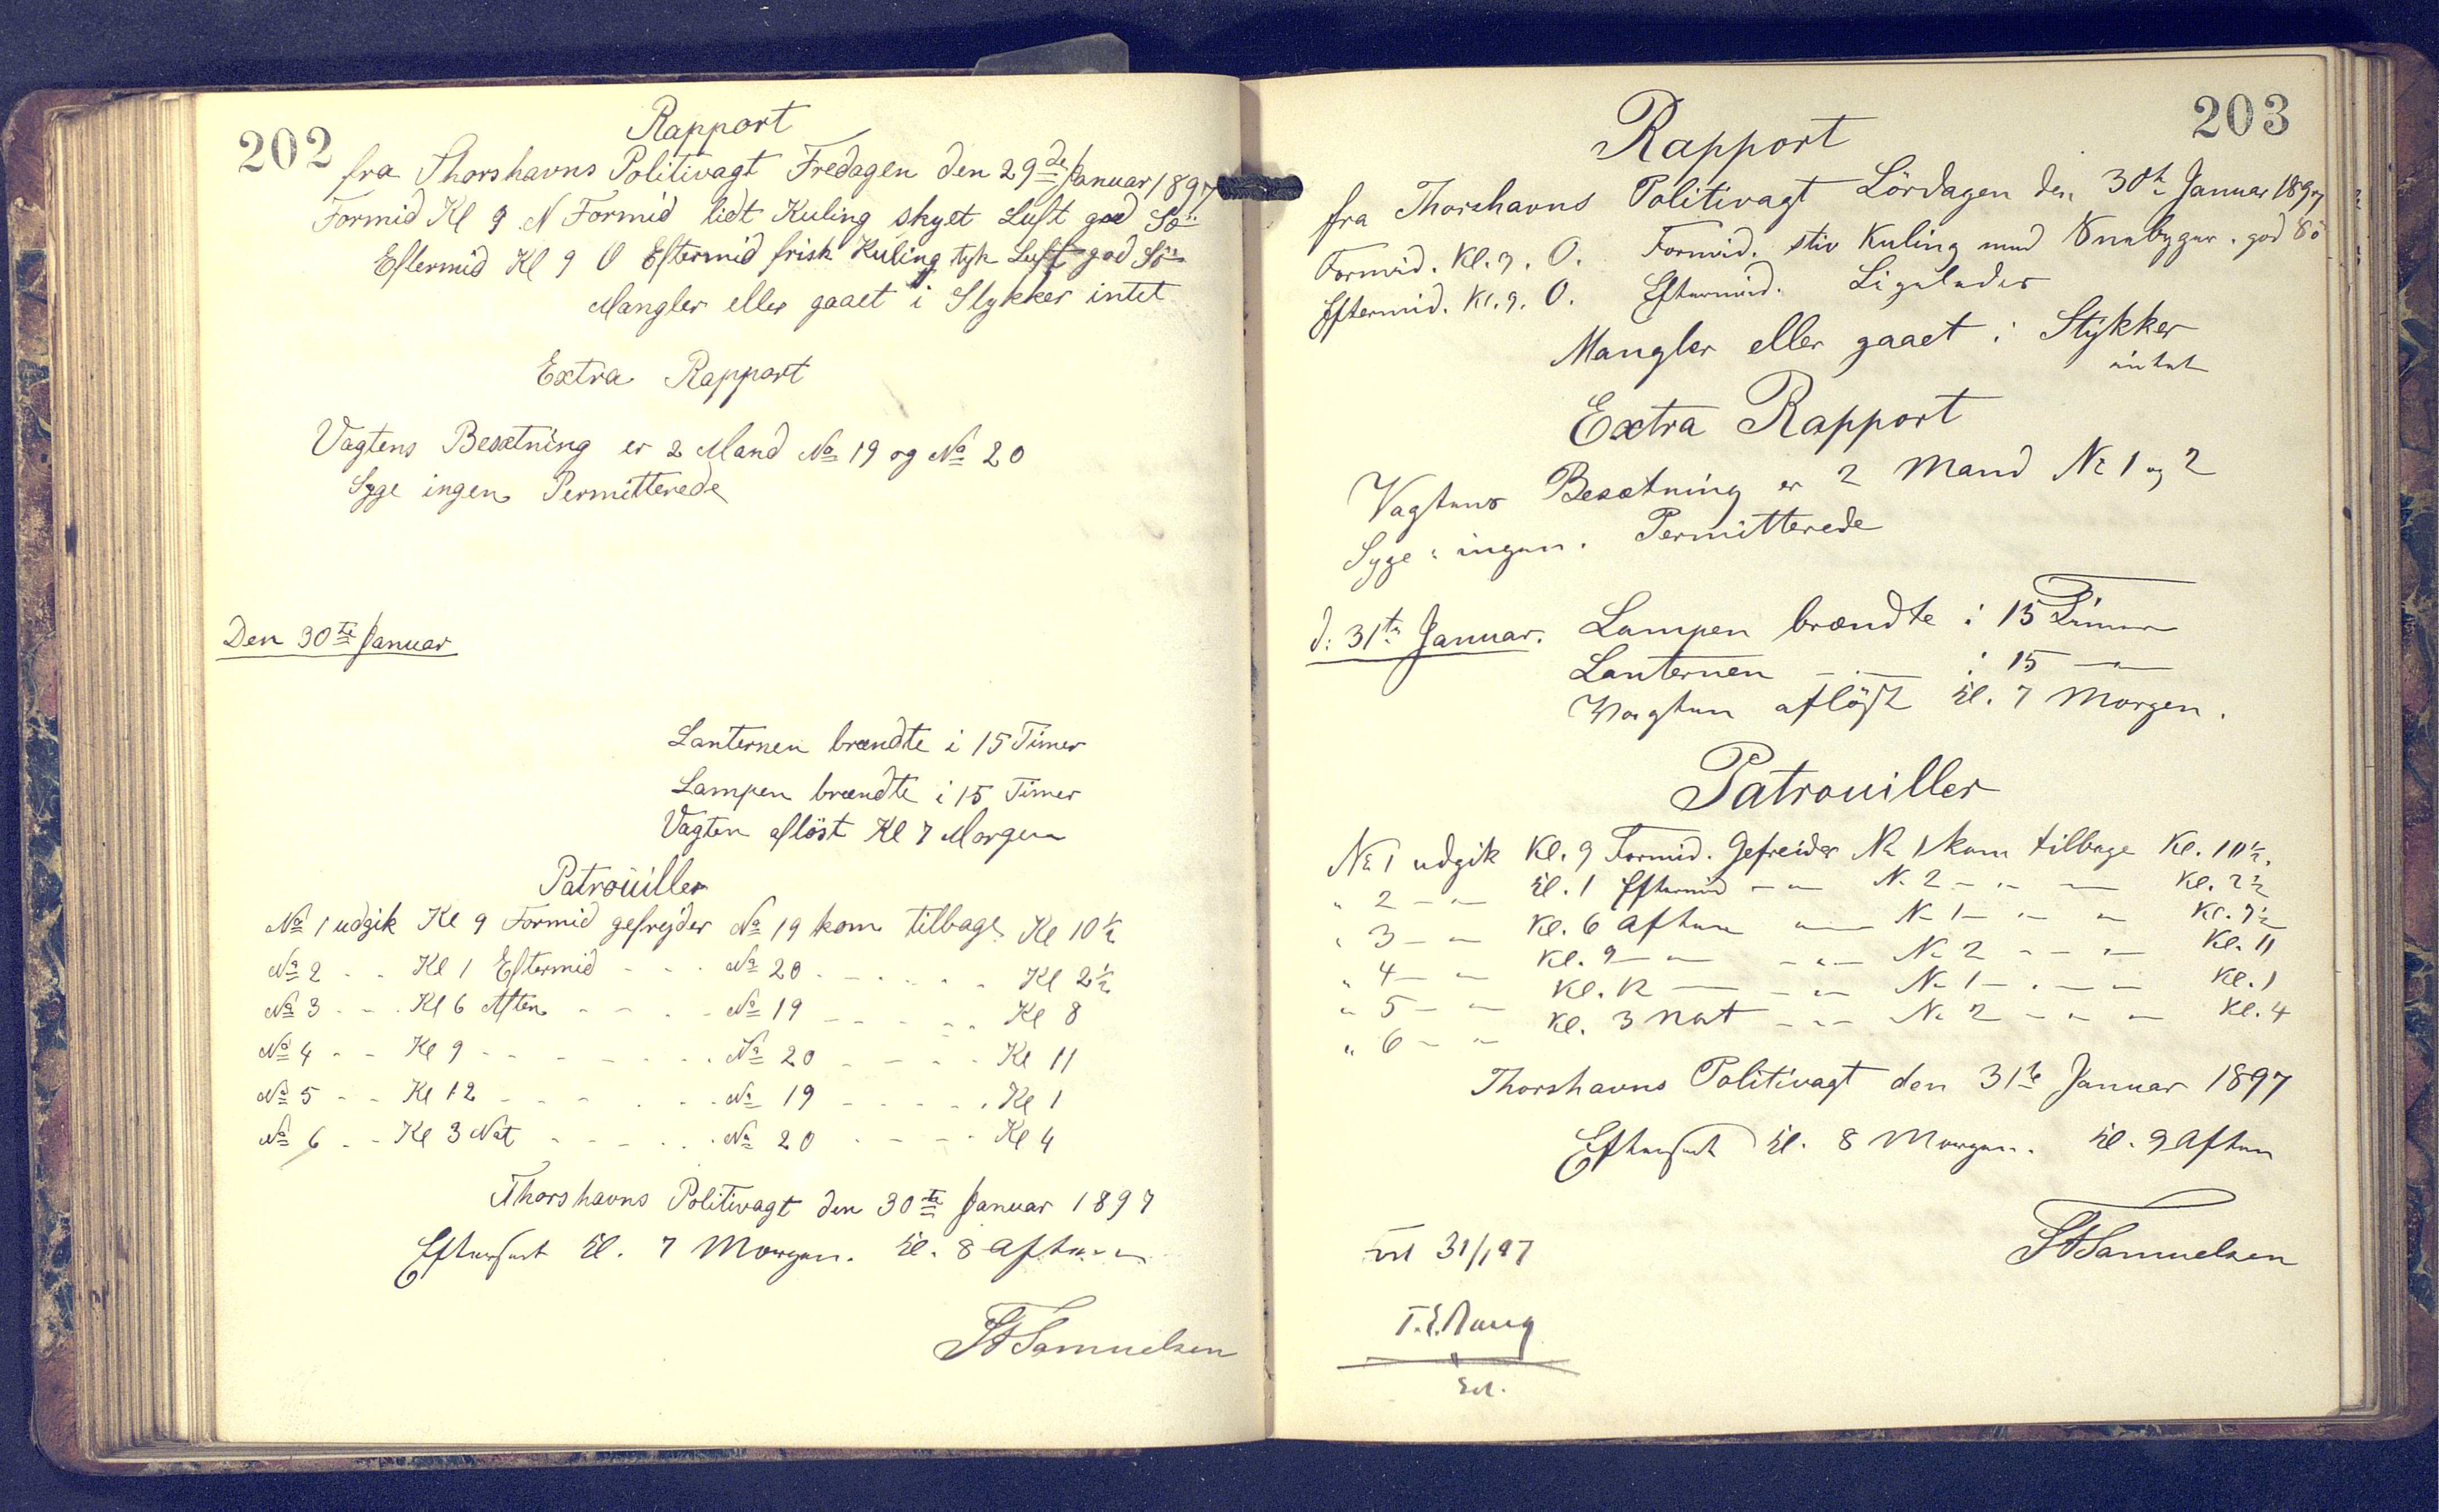 202
Rapport
fra Thorshavns Politivagt Fredagen den 29de Januar 1897
Formid Kl 9 N Formid lidt Kuling skyet Luft god Sö
Eftermid Kl 9 O Eftermid frisk Kuling tyk Luft god Sö
Mangler eller gaaet i Stykker intet
Extra Rapport
Vagtens Besætning er 2 Mand No 19 og No 20
Syge ingen Permitterede
Den 30te Januar
Lanternen brændte i 15 Timer
Lampen brændte i 15 Timer
Vagten aflöst Kl 7 Morgen
Patrouiller
No 1 udgik Kl 9 Formid gefrejder No 19 kom tilbage Kl 10½
No 2 - - Kl 1 Eftermid - - - No 20 - - - - - Kl 2½
No 3 - - Kl 6 Aften - - - - No 19 - - - - - Kl 8
No 4 - - Kl 9 - - - - - - - No 20 - - - - Kl 11
No 5 - - Kl 12 - - - - - - No 19 - - - - - Kl 1
No 6 - - Kl 3 Nat - - - - - No 20 - - - - Kl 4
Thorshavns Politivagt den 30te Januar 1897
Efterseet Kl. 7 Morgen. Kl. 8 Aften
Samuelsen
203
Rapport
fra Thorshavns Politivagt Lördagen den 30te Januar 1897
Formid. Kl. 9. O. Formid. stiv Kuling med Snebyger. god Sö
Eftermid. Kl. 9. O. Eftermid. Ligeledes
Mangler eller gaaet i Stykker
intet
Extra Rapport
Vagtens Besætning er 2 Mand No 1 og 2
Syge: ingen. Permitterede
d: 31te Januar. Lampen brændte i 15 Timer
Lanternen - - — i 15 — " —
Vagten aflöst Kl. 7 Morgen.
Patrouiller
No 1 udgik Kl. 9 Formid. Gefreider No 1 kom tilbage Kl. 10½.
" 2 - " - Kl. 1 Eftermid - " - No 2 - " - " - Kl. 2½
" 3 - " - Kl. 6 Aften - " - No 1 - " - " - Kl. 7½
" 4 - " - Kl. 9 - " - - " - No 2 - " - " - Kl. 11
" 5 - " - Kl. 12 — - " - No 1 - " - " - Kl. 1
" 6 - " - Kl. 3 Nat - " - No 2 - " - " - Kl. 4
Thorshavns Politivagt den 31te Januar 1897
Efterseet Kl. 8 Morgen. Kl. 9 Aften
Samuelsen
31/1 97